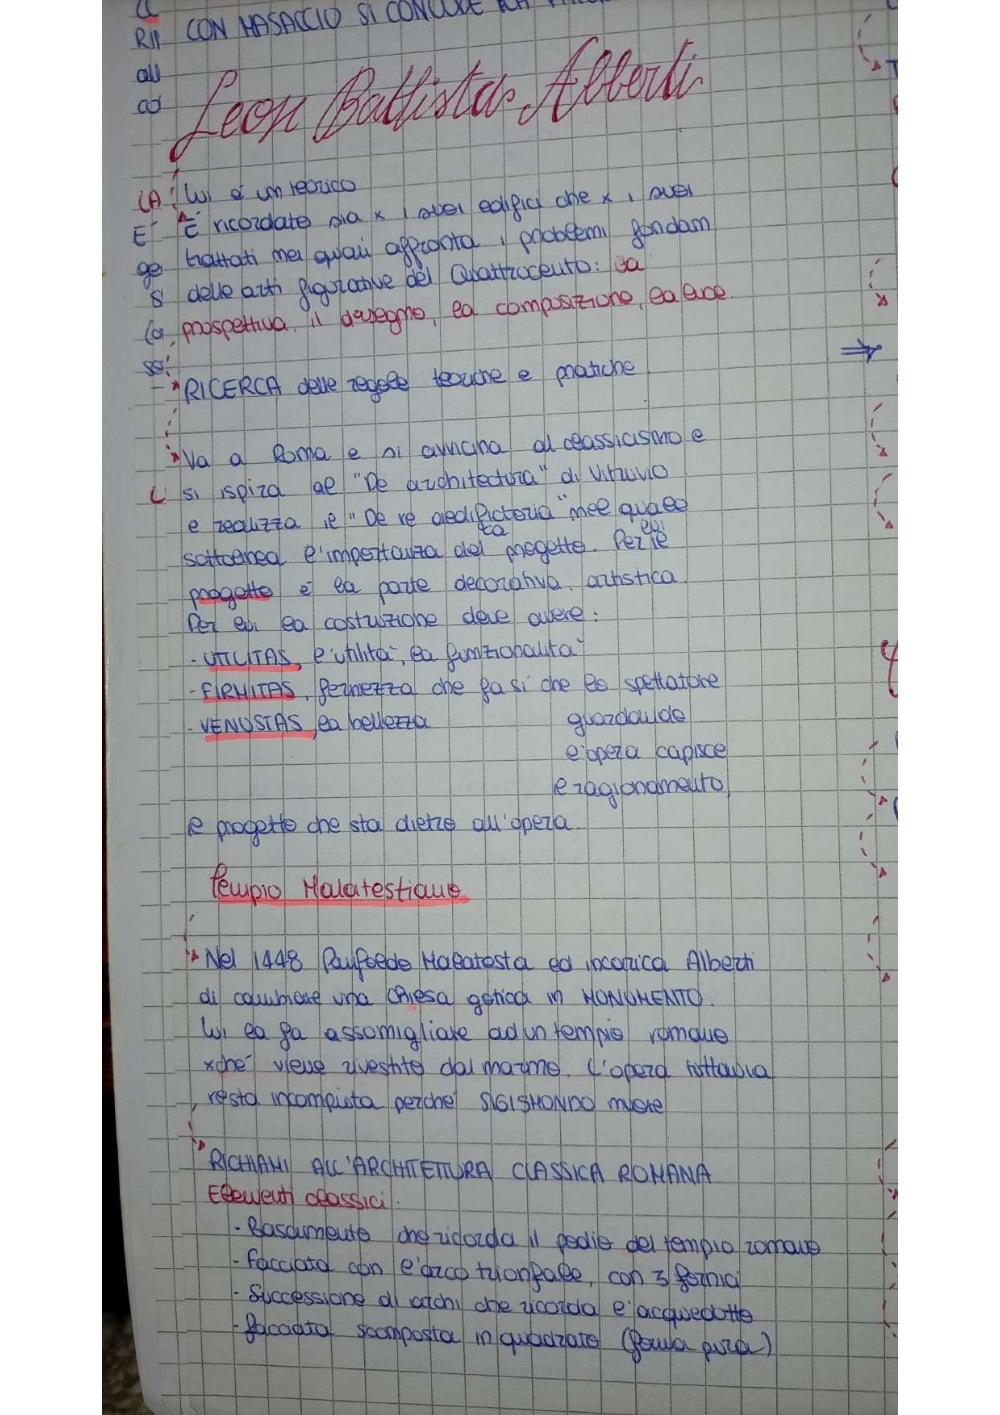 CON MASACCIO SI CONCLUDE
RII
all
cd
Leon Battista Alberti
(A
Lui è un teorico
E'
È ricordato sia x i suoi edifici che x i suoi
ge
trattati nei quali affronta i problemi fondam
s
delle arti figurative del Quattrocento: la
(a
prospettiva, il disegno, la composizione, la luce.
RICERCA delle regole teoriche e pratiche
Va a Roma e si avvicina al classicismo e
si ispira al "De architectura" di Vitruvio
e realizza il "De re aedifictoria" nel quale
ta
sottolinea l'importanza del progetto. Per il
lui
progetto è la parte decorativa, artistica.
Per lui la costruzione deve avere:
- UTILITAS, l'utilità, la funzionalità
- FIRMITAS, fermezza che fa si che lo spettatore
guardando
- VENUSTAS, la bellezza
l'opera capisce
il ragionamento,
il progetto che sta dietro all'opera.
Tempio Malatestiano
Nel 1448 Panfoldo Malatesta ed incarica Alberti
di cambiare una chiesa gotica in MONUMENTO.
Lui la fa assomigliare ad un tempio romano
xché viene rivestito dal marmo. L'opera tuttavia
resta incompiuta perché SIGISMONDO muore
RICHIAMI ALL'ARCHITETTURA CLASSICA ROMANA
Elementi classici:
- Basamento che ricorda il podio del tempio romano
- facciata con l'arco trionfale, con 3 fornici
- Successione di archi che ricorda l'acquedotto
- facciata scomposta in quadrato (forma pura)